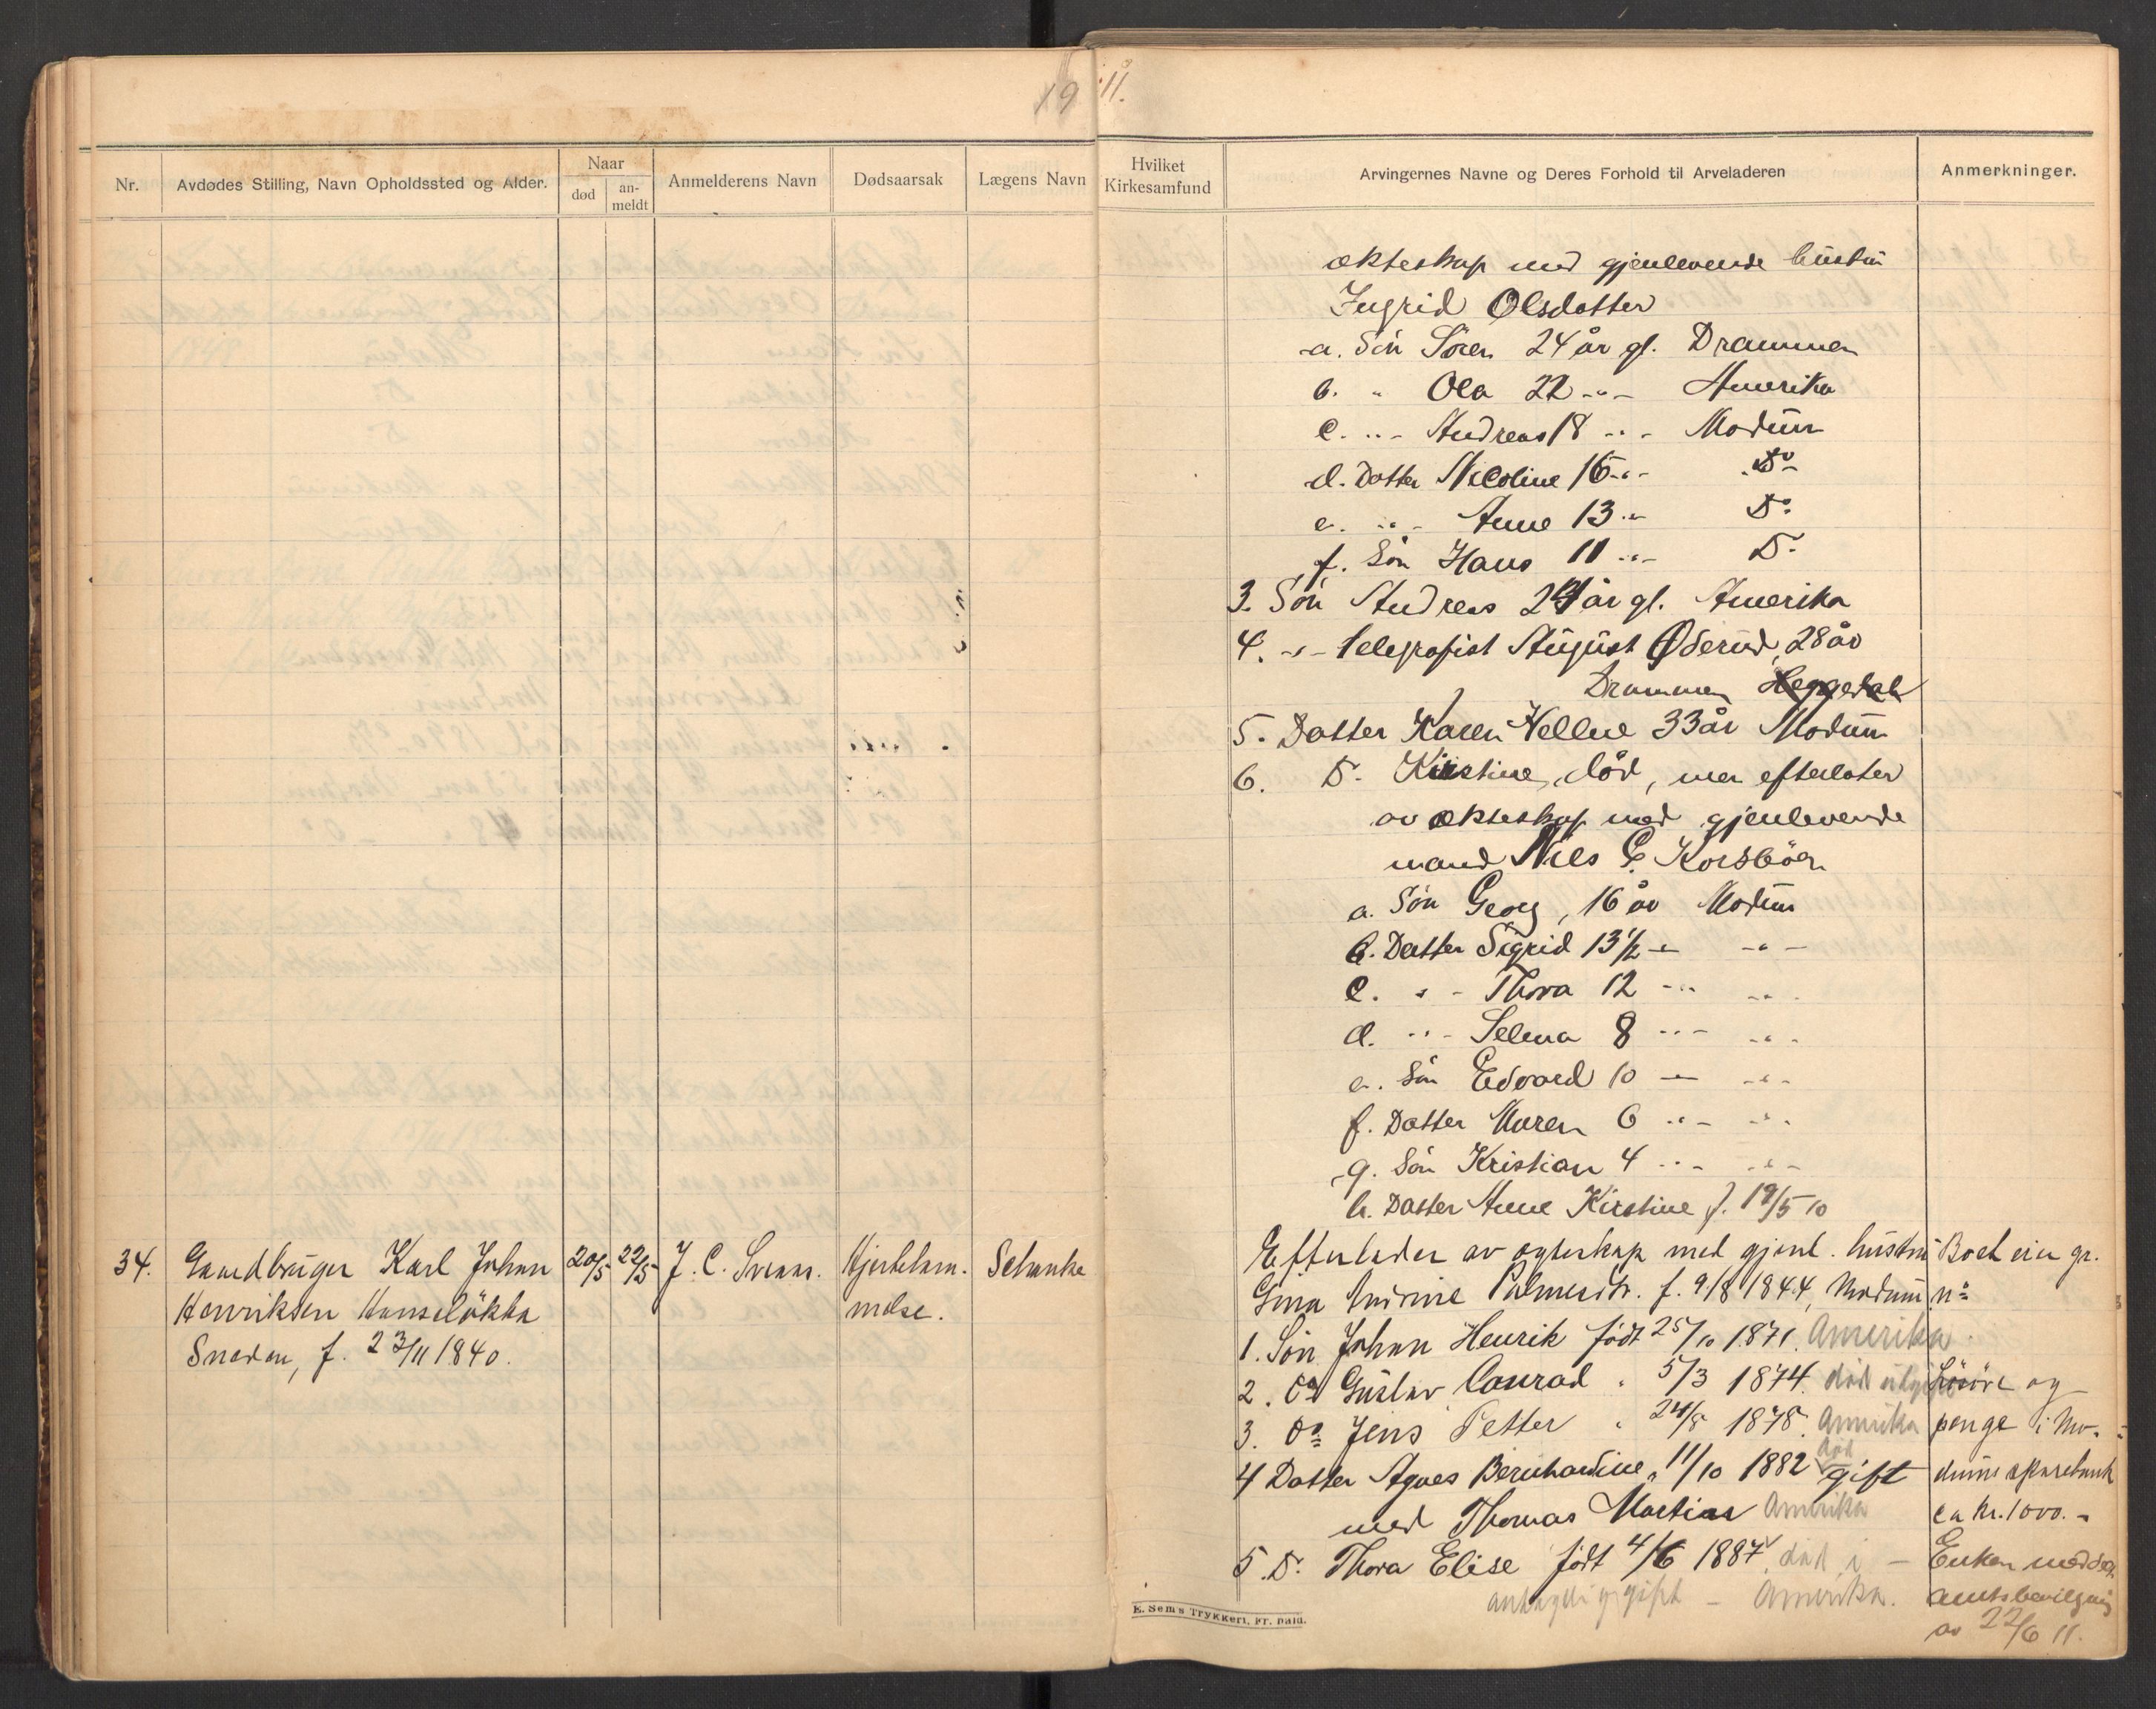 19
11.
Nr.
Avdødes Stilling, Navn Opholdssted og Alder.
Naar
død
an-
meldt
Anmelderens Navn
Dødsaarsak
Lægens Navn
Hvilket
Kirkesamfund
Arvingernes Navne og Deres Forhold til Arveladeren
Anmerkninger.
ekteskap med gjenlevende hustru
Ingrid Olsdatter
a. Sön Sören 24 år gl. Drammen
b. " Ola 22 -"- Amerika
c. -"- Andreas 18 -"- Modum
d. Datter Nicoline 16 -"- Do
e. -"- Anne 13 -"- Do
f. Sön Hans 11 -"- Do
3. Sön Andreas år gl. Amerika
4. -"- telegrafist August Öderud, 28 år
Drammen Heggedal
5. Datter Karen Hellne 33 år Modum
6. Do Kirstine, död, men efterlater
av ekteskap med gjenlevende
mand Nils E. Korsböen
a. Sön Georg, 16 år Modum
b. Datter Sigrid 13 1/2 -"- -"-
c. -"- Thora 12 -"- -"-
d. -"- Selma 8 -"- -"-
e. Sön Edvard 10 -"- -"-
f. Datter Maren 6 -"- -"-
g. Sön Kristian 4 -"- -"-
h. Datter Anne Kirstine f. 19/5 10
34. Gaardbruger Karl Johan 20/5 22/5 J. C. Svens. Hjertelam- Schanke
Henriksen Hanselökka melse.
Sneden, f. 23/11 1840.
Efterlader av egteskap med gjenl. hustru
Gina Palmesdtr. f. 9/8 1844, Modum
1. Sön Johan Henrik født 25/10 1871. Amerika
2. Do Gustav Conrad " 5/3 1874. død ugift
3. Do Jens Petter " 24/8 1878. Amerika
4 Datter Agnes Bernhardine " 11/10 1882 død gift
med Thomas Martias Amerika
5. Do Thora Elise født 4/6 1887 død i
antagelig gift - Amerika.
Boet eier gr.
no
Lösöre og
penge i Mo-
dums sparebank
ca kr. 1000.-
Enken
amtsbevilgning
av 22/6 11.
E. Sem's Trykkeri, Fr. hald.